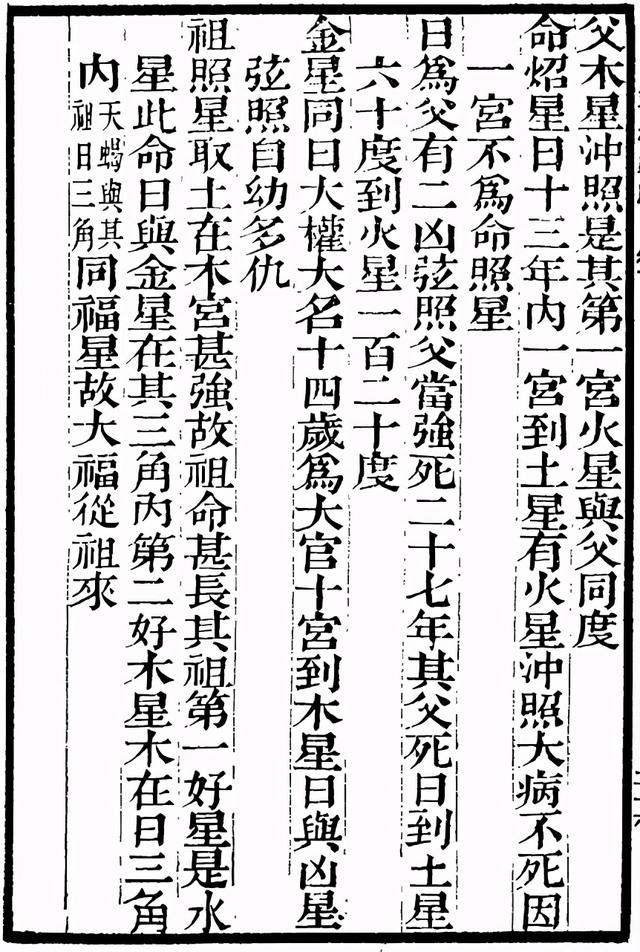 父木星沖照是其第一宮火星與父同度
命炤星日十三年內一宮到土星有火星沖照大病不死因
一宮不爲命照星
日爲父有二凶弦照父當強死二十七年其父死日到土星
六十度到火星一百二十度
金星同日大權大名十四歲爲大官十宮到木星日與凶星
弦照自幼多仇
祖照星取土在木宮甚強故祖命甚長其祖第一好星是水
星此命日與金星在其三角內第二好木星木在日三角
內天蝎與其祖日三角同福星故大福從祖來